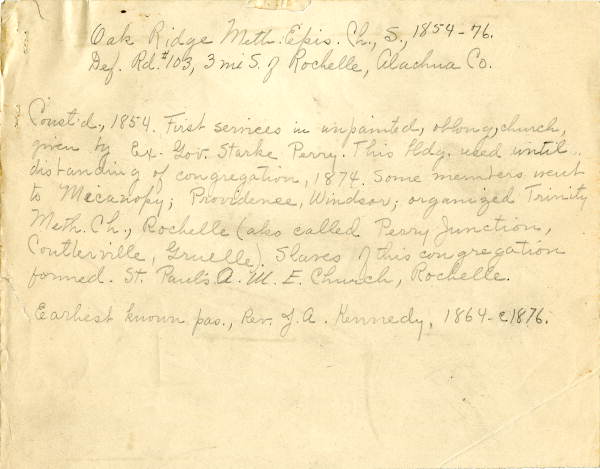 Oak Ridge Meth. Epis. Ch., S., 1854-76.
Def. Rd. #103, 3 mi S. of Rochelle, Alachua Co.
Const'd., 1854. First services in unpainted, oblong, church,
given by Ex-Gov. Starke Perry. This bldg. used until
disbanding of congregation, 1874. Some members went
to Micanopy; Providence, Windsor; organized Trinity
Meth. Ch., Rochelle (also called Perry Junction,
Coutterville, Gruelle). Slaves of this congregation
formed St. Paul's A. M. E. Church, Rochelle.
Earliest known pas., Rev. J. A. Kennedy, 1864-c1876.